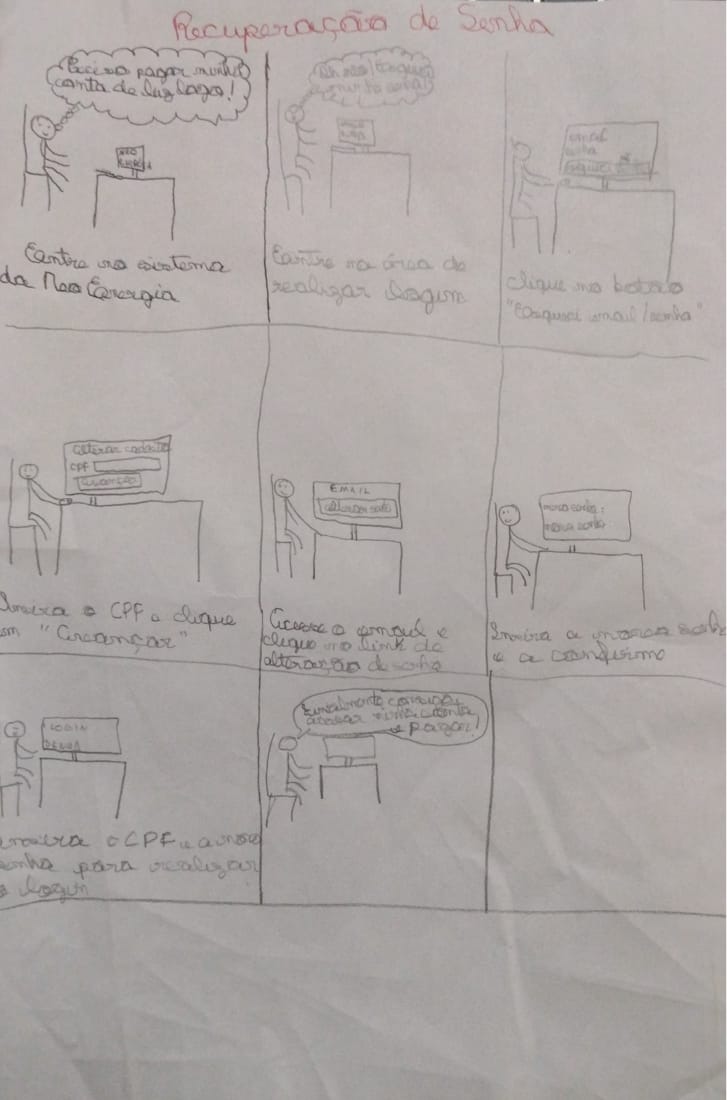 Recuperação de Senha
Preciso pagar minha
conta de luz logo!
NEO
ENERGIA
Entre no sistema
da Neo Energia
Ah não! Esqueci
minha senha!
Entre na área de
realizar login
email
senha
Esqueci
clique no botão
"Esqueci email/senha"
alterar cadastro
CPF
Avançar
Insira o CPF e clique
em "Avançar"
EMAIL
alterar senha
Acesse o email e
clique no link de
alteração de senha
nova senha:
nova senha
Insira a nova senha
e a confirme
LOGIN
SENHA
Insira o CPF e a nova
senha para realizar
o login
Finalmente consegui
acessar minha conta
e pagar!